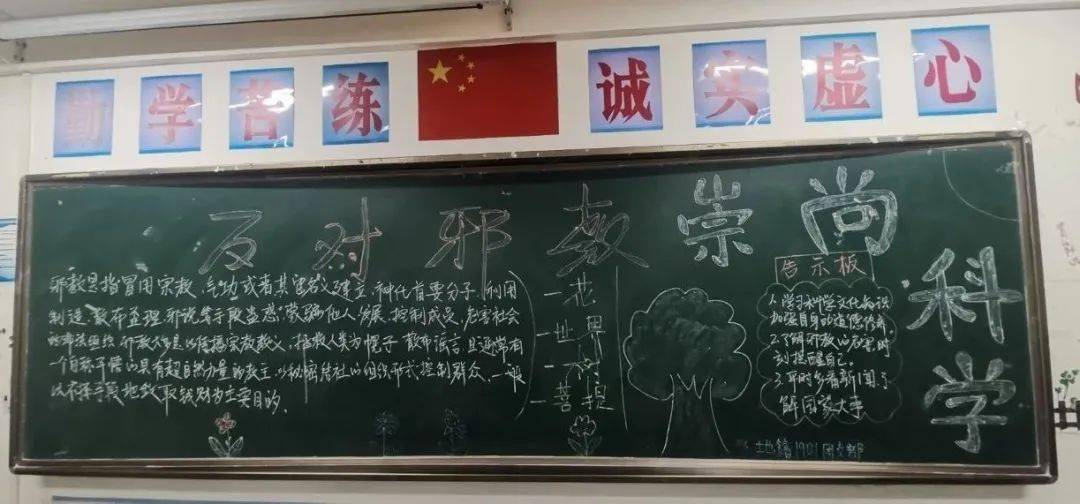 勤学苦练
诚实虚心
反对邪教崇尚科学
邪教是指冒用宗教、气功或者其它名义建立,神化首要分子,利用
制造、散布歪理邪说等手段蛊惑、蒙骗他人,发展、控制成员,危害社会
的非法组织.邪教大多是以传播宗教教义、拯救人类为幌子,散布谣言,且通常有
一个自称开悟的具有超自然力量的教主,以秘密结社的组织形式控制群众,一般
以不择手段地敛取钱财为主要目的.
一花
一世界
一菩提
告示板
1.学习科学文化知识
加强自身的道德修养.
2.了解邪教的危害时
刻提醒自己.
3.平时多看新闻,了
解国家大事
1901团支部